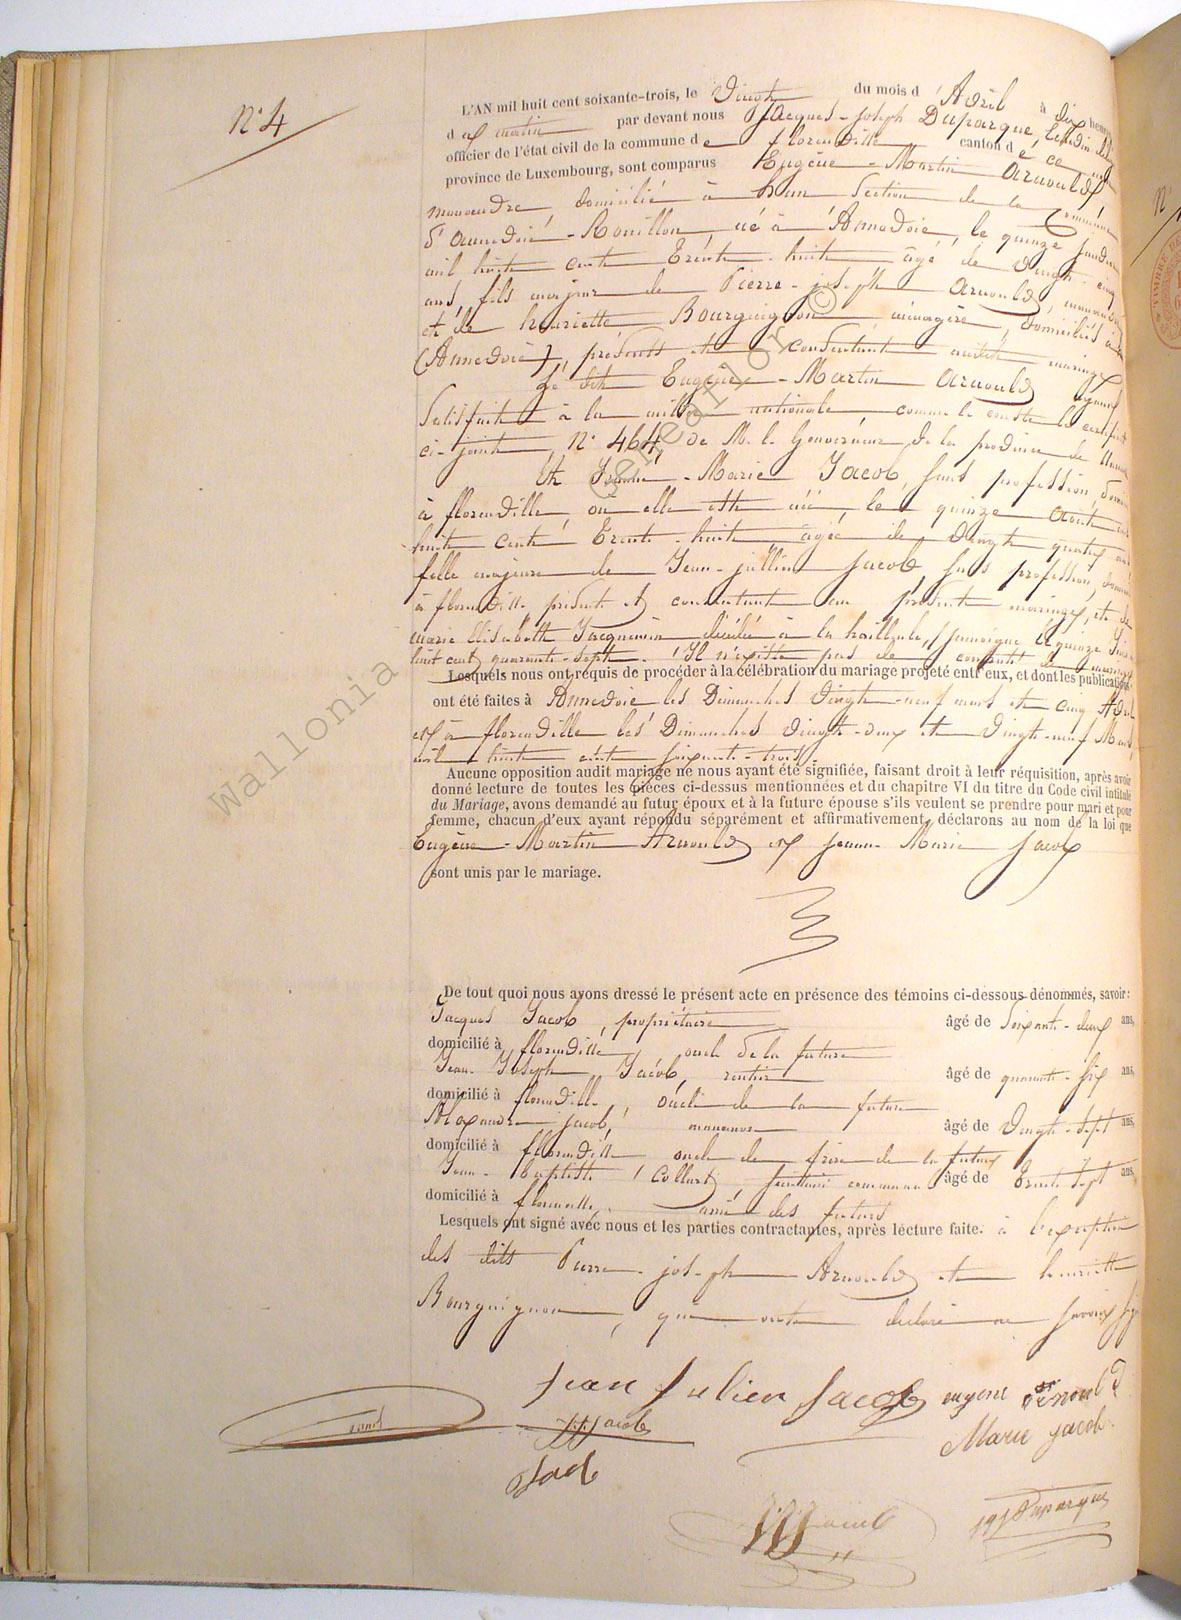 N° 4
L'AN mil huit cent soixante-trois, le Vingt du mois d'Avril à dix heures
d u matin par devant nous Jacques-Joseph Duparque, Echevin délégué
officier de l'état civil de la commune de florenville canton d é ce
province de Luxembourg, sont comparus Eugène-Martin Arnould
manoeuvre, domicilié à hun Section de la Commune
d'annedoie-Rouillon, né à Annedoie, le quinze
mil huit cent trente-huit âgé de vingt-cinq
ans, fils majeur de Pierre-joseph Arnould,
et de henriette Bourguignon ménagère, domiciliés à
(Annedoie), présents et consentant audit mariage
Le dit Eugène-Martin Arnould ayant
Satisfait à la milice nationale, comme le conste le certificat
ci-joint, N° 464, de M. le Gouverneur de la province de
Et Jeanne-Marie Jacob, sans profession,
à florenville, ou elle est née, le quinze Août mil
huit cent trente-huit, âgée de vingt quatre ans
fille majeure de Jean-jullien Jacob sans profession,
à florenville, présent et consentant au présent mariage, et de
marie Elisabeth Jacquemin décédée à la le quinze
huit cent quarante-sept. Il n'existe pas de contrat de mariage
Lesquels nous ont requis de procéder à la célébration du mariage projeté entr'eux, et dont les publications
ont été faites à Annedoie les Dimanches Vingt-neuf mars et cinq Avril
et à florenville les Dimanches Vingt-deux et Vingt-neuf Mars
mil huit cent soixante-trois.
Aucune opposition audit mariage ne nous ayant été signifiée, faisant droit à leur réquisition, après avoir
donné lecture de toutes les pièces ci-dessus mentionnées et du chapitre VI du titre du Code civil intitulé
du Mariage, avons demandé au futur époux et à la future épouse s'ils veulent se prendre pour mari et pour
femme, chacun d'eux ayant répondu séparément et affirmativement, déclarons au nom de la loi que
Eugène-Martin Arnould et Jeanne-Marie Jacob
sont unis par le mariage.
De tout quoi nous avons dressé le présent acte en présence des témoins ci-dessous dénommés, savoir:
Jacques Jacob, propriétaire âgé de Soixante-deux ans,
domicilié à florenville, oncle de la future
Jean-Joseph Jacob, rentier âgé de quarante-six ans,
domicilié à florenville, oncle de la future
Alexandre jacob, âgé de Vingt-sept ans,
domicilié à florenville oncle de frère de la future
Jean-baptiste Collard, secrétaire communal âgé de trente sept ans,
domicilié à florenville, ami des futurs
Lesquels ont signé avec nous et les parties contractantes, après lecture faite. à l'exception
des dits Pierre-joseph Arnould et henriette
Bourguignon, qui ont déclaré ne savoir signer
Jean Julien Jacob eugene arnould
JJJacob
Marie jacob
Jacob
JJ Duparque
Wallonia Geneaflor ©